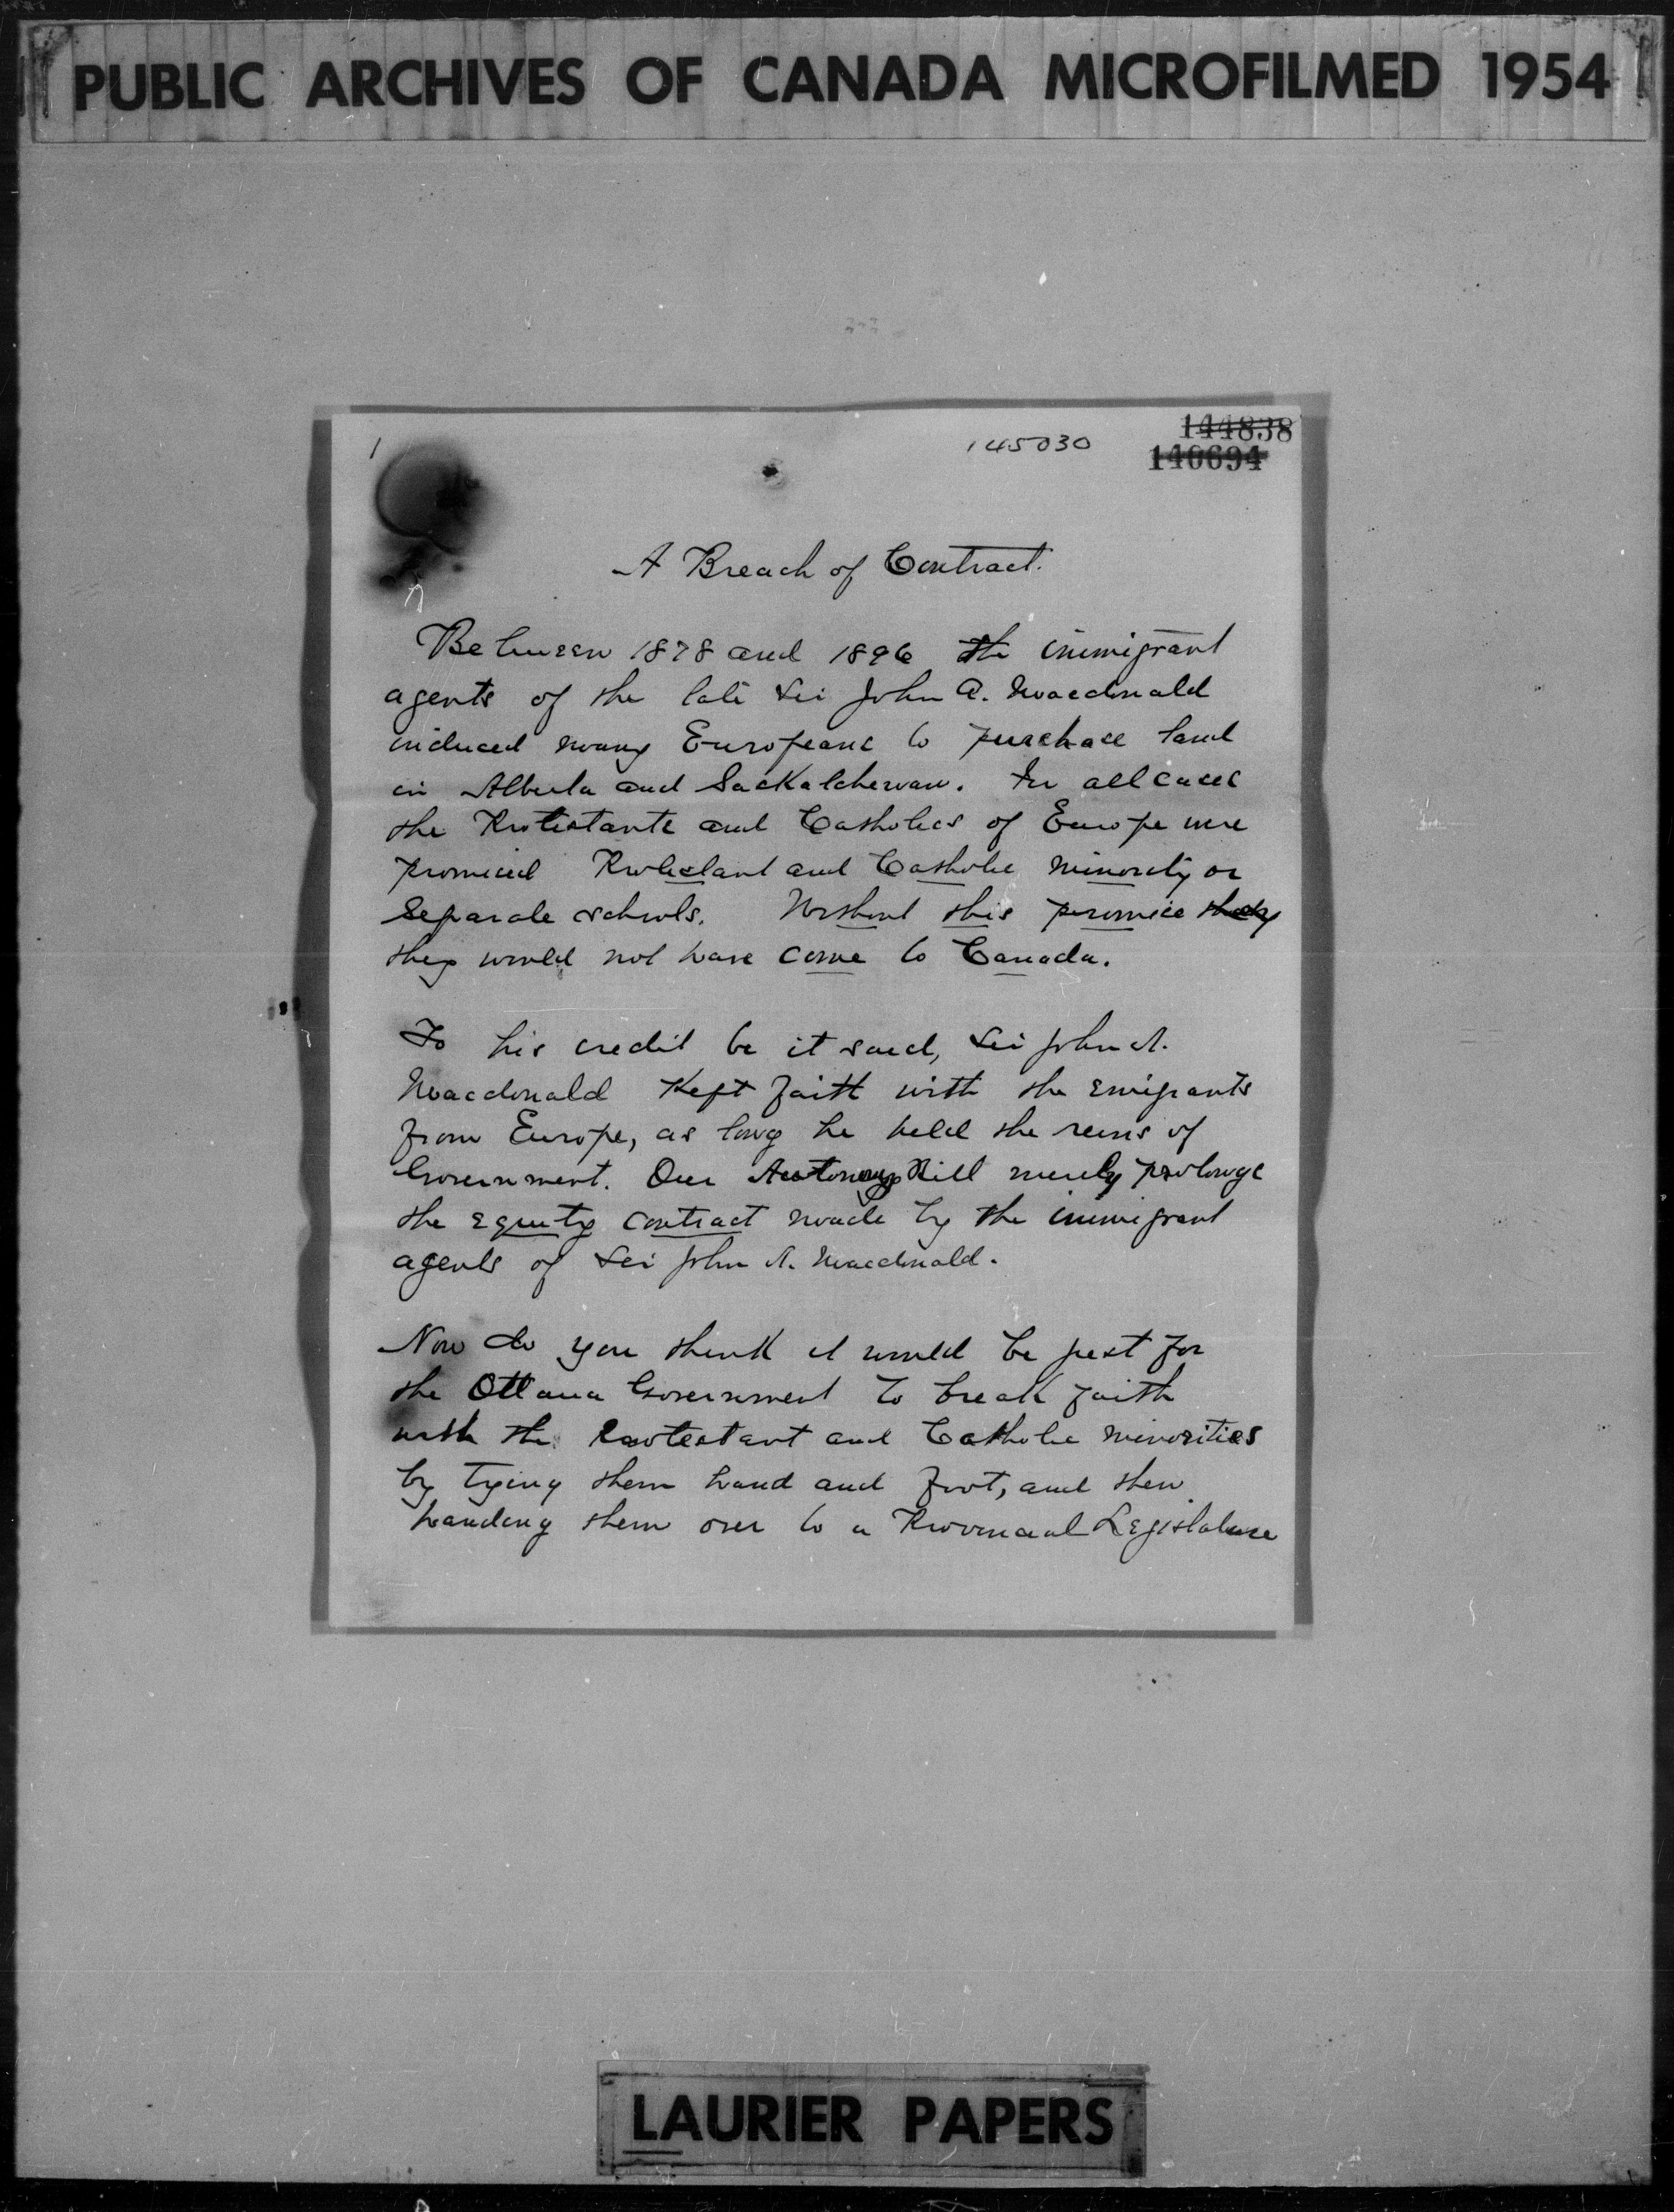 PUBLIC ARCHIVES OF CANADA MICROFILMED 1954
1
145030
144838
140694
A Breach of Contract.
Between 1878 and 1896 the immigrant
agents of the late Sir John A. Macdonald
induced many Europeans to purchase land
in Alberta and Saskatchewan. In all cases
the Protestants and Catholics of Europe were
promised Protestant and Catholic minority or
Separate schools. Without this promise they
they would not have come to Canada.
To his credit be it said, Sir John A.
Macdonald kept faith with the emigrants
from Europe, as long he held the reins of
Government. Our Autonomy Bill merely prolongs
the equity contract made by the immigrant
agents of Sir John A. Macdonald.
Now do you think it would be just for
the Ottawa Government to break faith
with the Protestant and Catholic minorities
by tying them hand and foot, and then
handing them over to a Provincial Legislature
LAURIER PAPERS